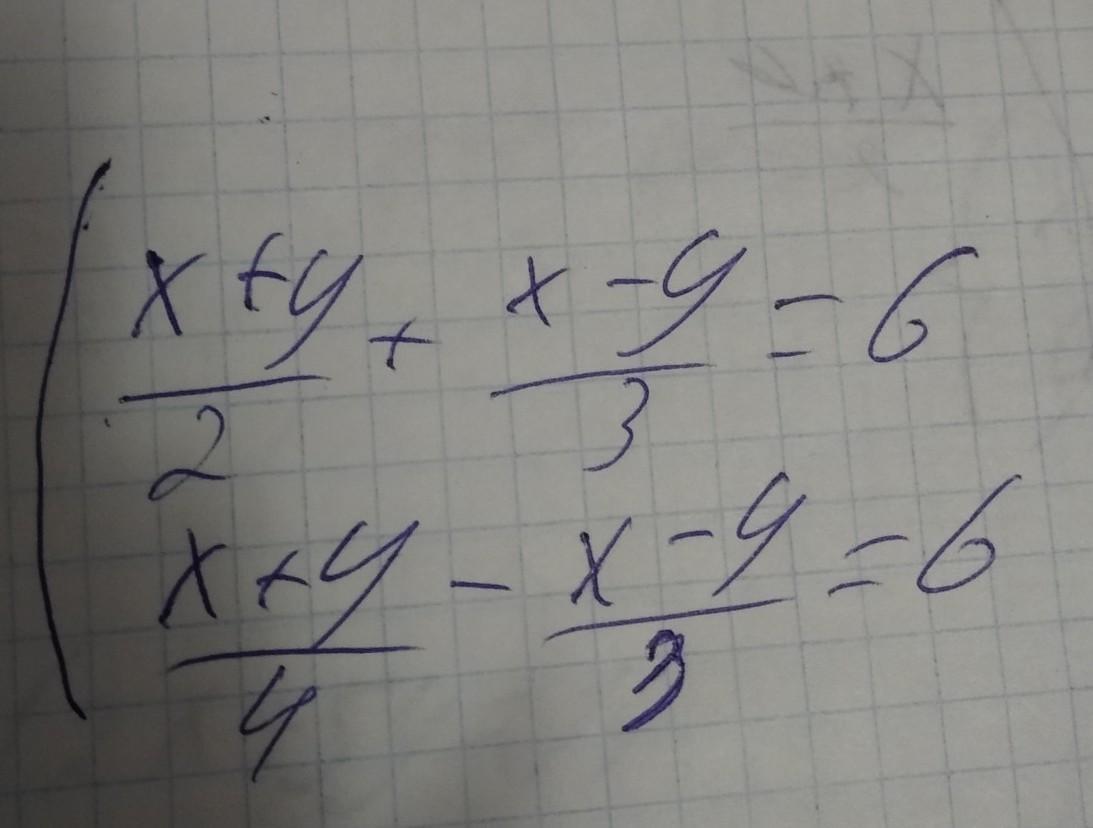 (x+y)/2 + (x-y)/3 = 6
(x+y)/4 - (x-y)/3 = 6